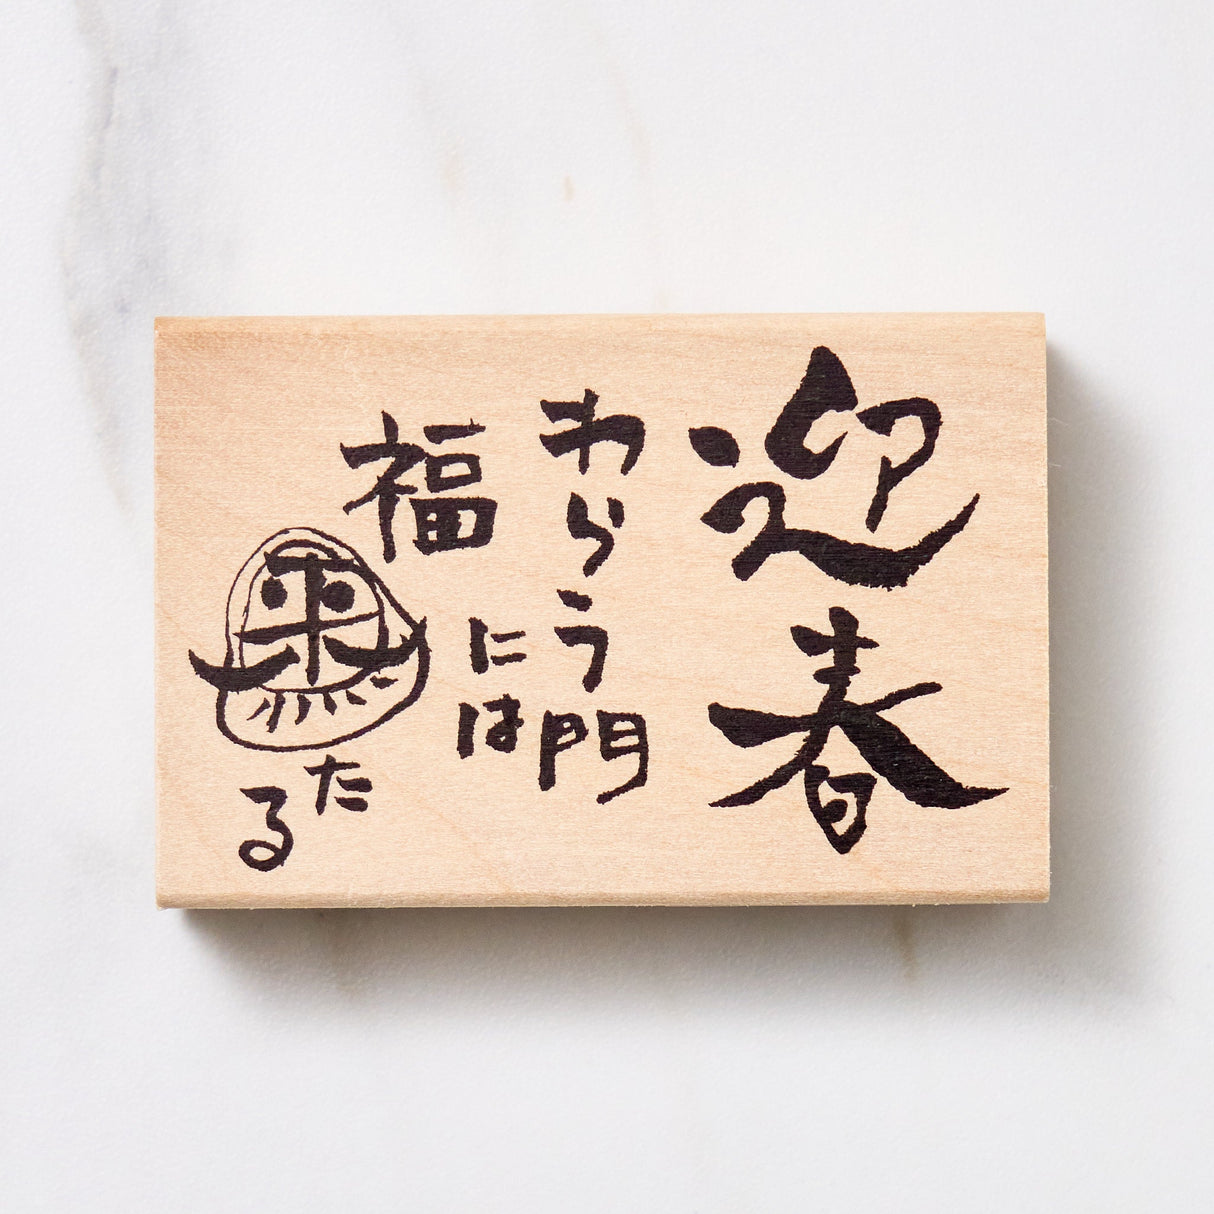 迎春
わらう門
には
福
来
たる